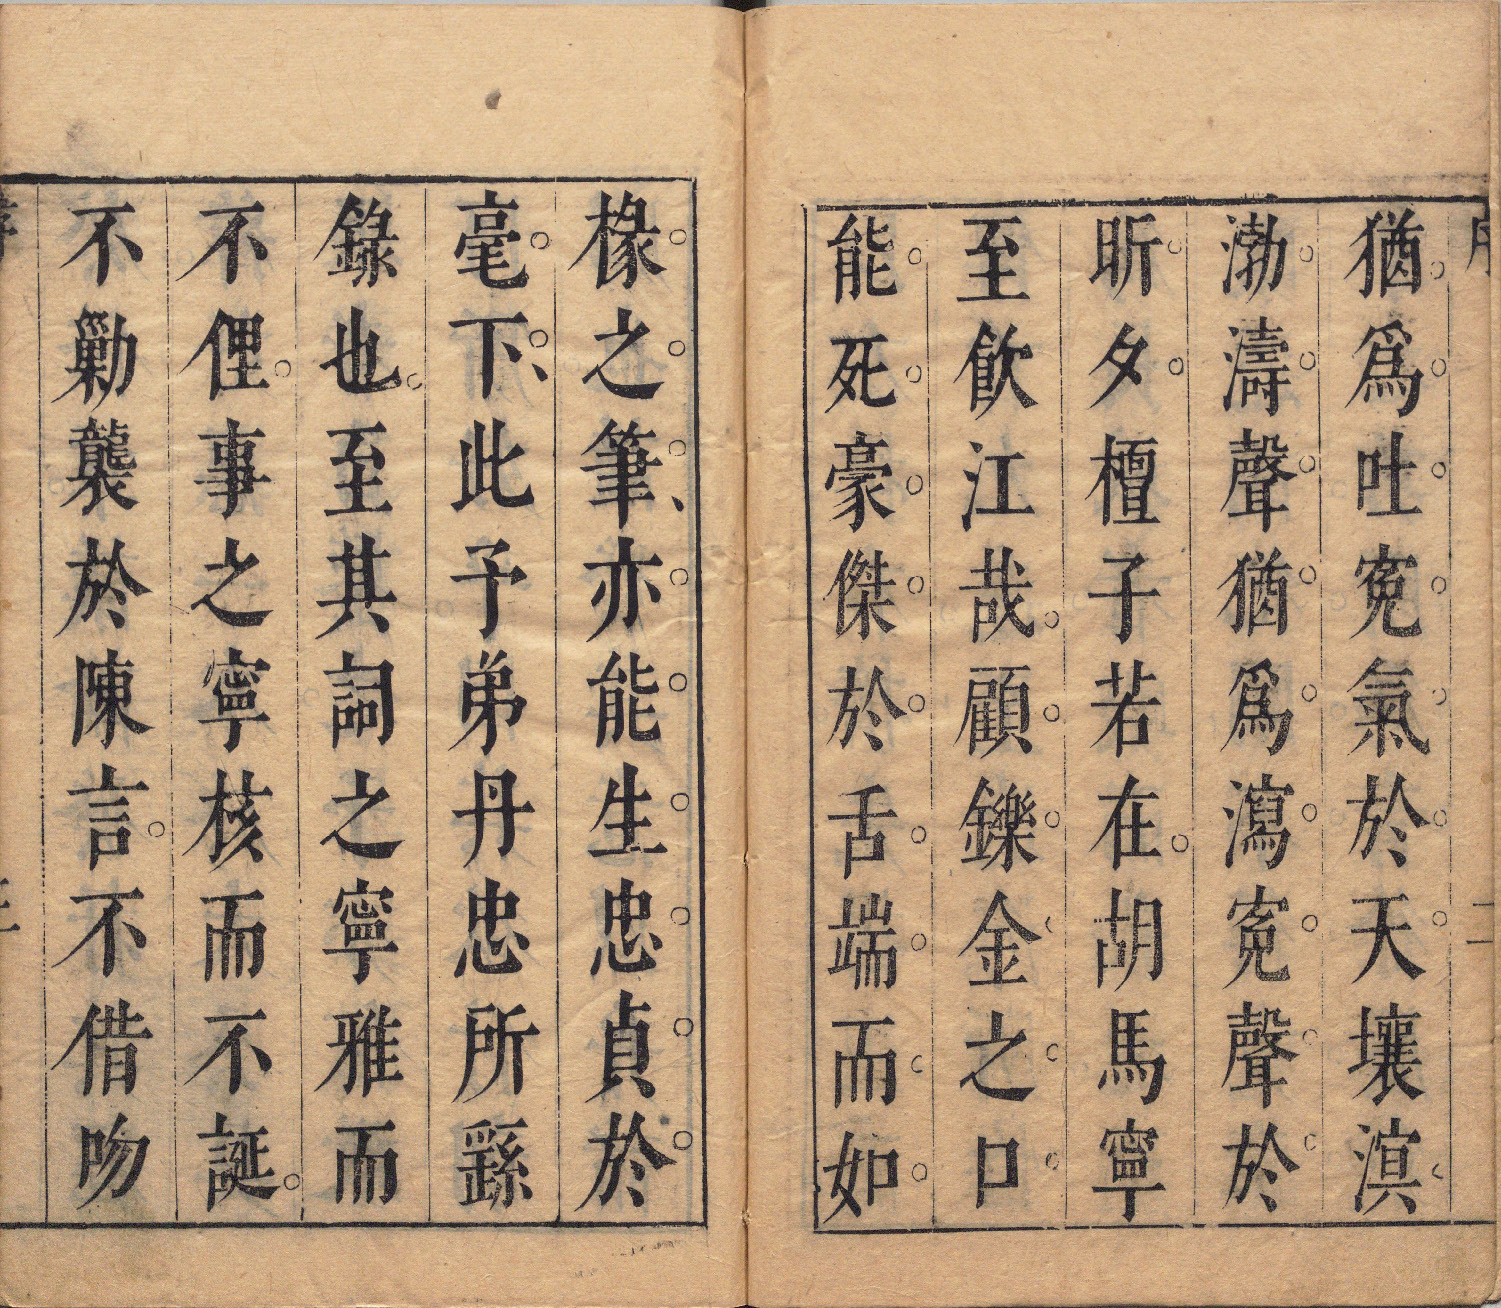 猶爲吐寃氣於天壤溟
渤濤聲猶爲瀉寃聲於
昕夕檀子若在胡馬寧
至飲江哉顧鑠金之口
能死豪傑於舌端而如
椽之筆亦能生忠貞於
毫下此予弟丹忠所繇
錄也至其詞之寧雅而
不俚事之寧核而不誕
不勦襲於陳言不借吻